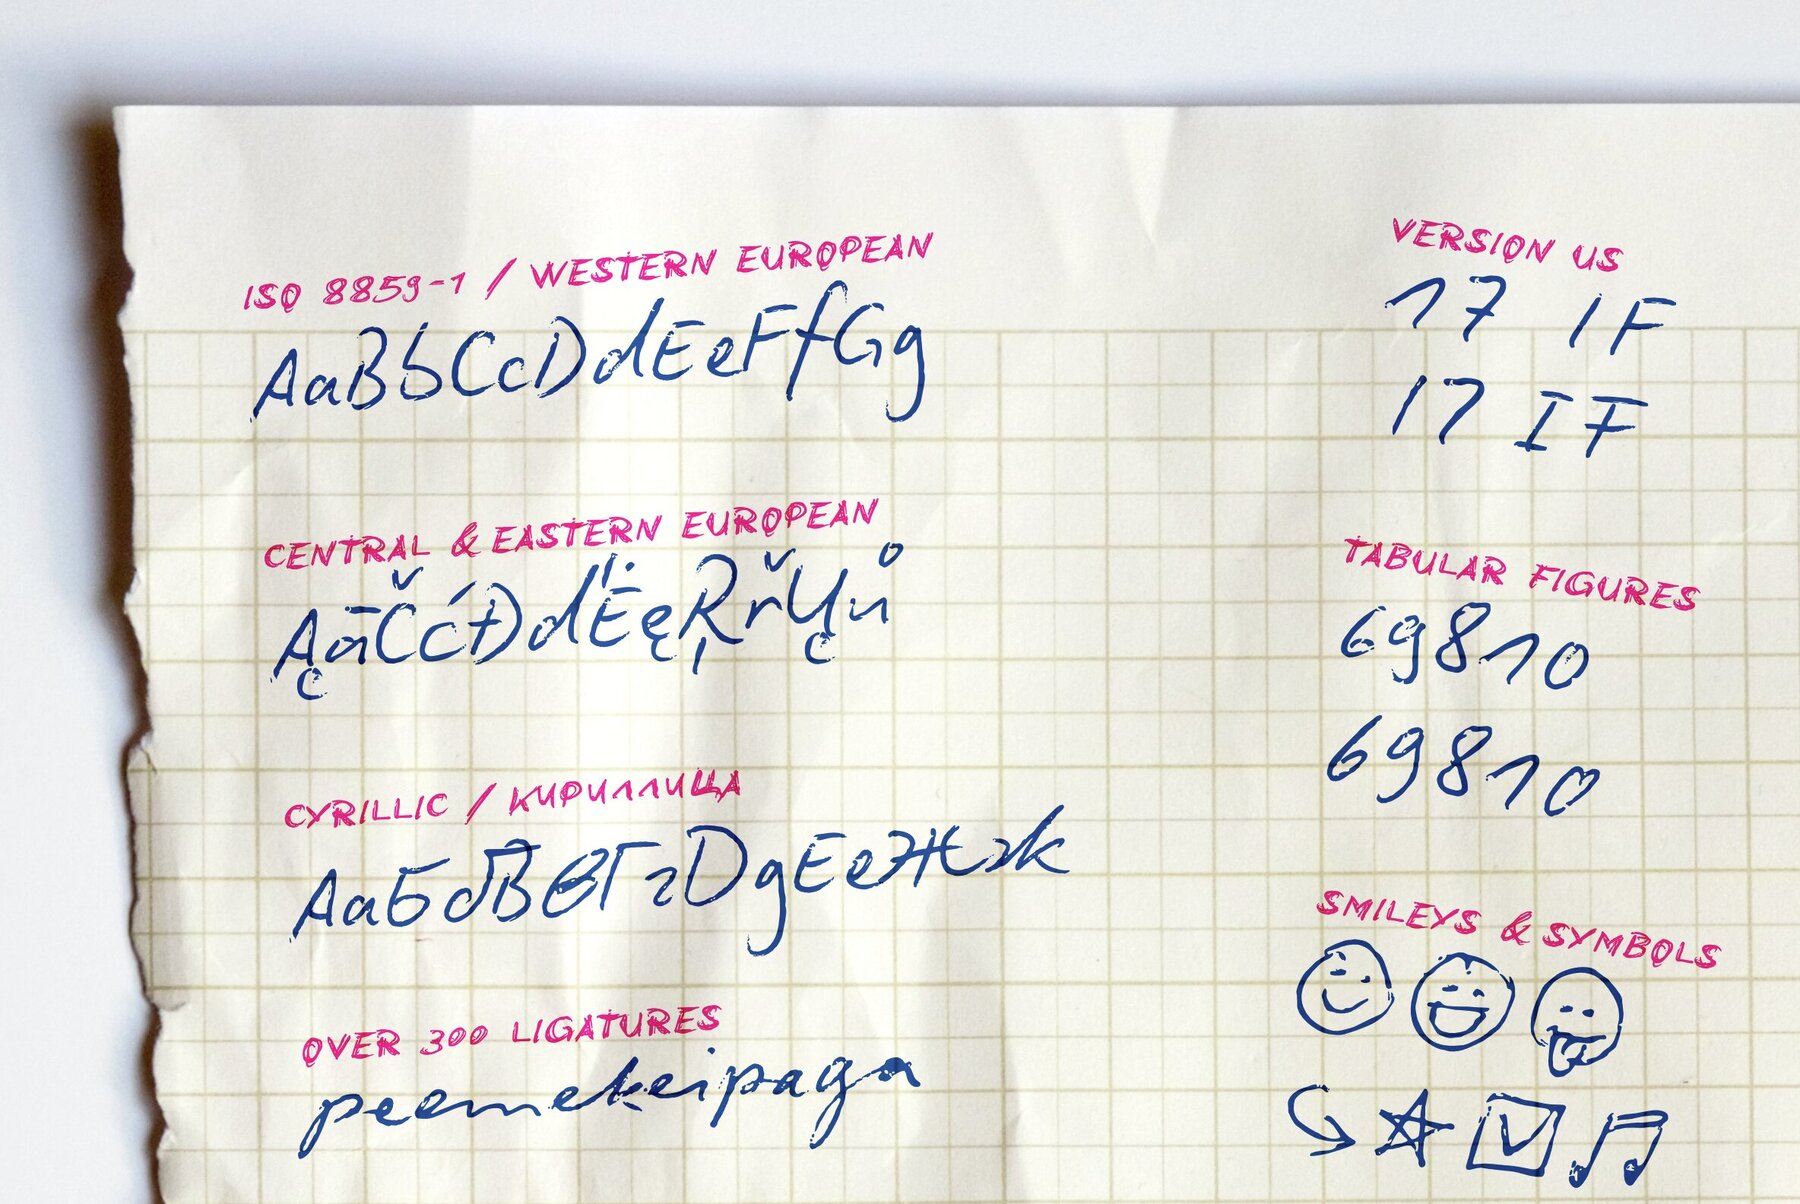 ISO 8859-1 / WESTERN EUROPEAN
AaBbCcDdEeFfGg
CENTRAL & EASTERN EUROPEAN
ĄāČćĐďĖęŖřŲů
CYRILLIC / КИРИЛЛИЦА
АаБбВвГгДдЕеЖжк
OVER 300 LIGATURES
peemekeipaga
VERSION US
17 IF
17 IF
TABULAR FIGURES
69810
69810
SMILEYS & SYMBOLS